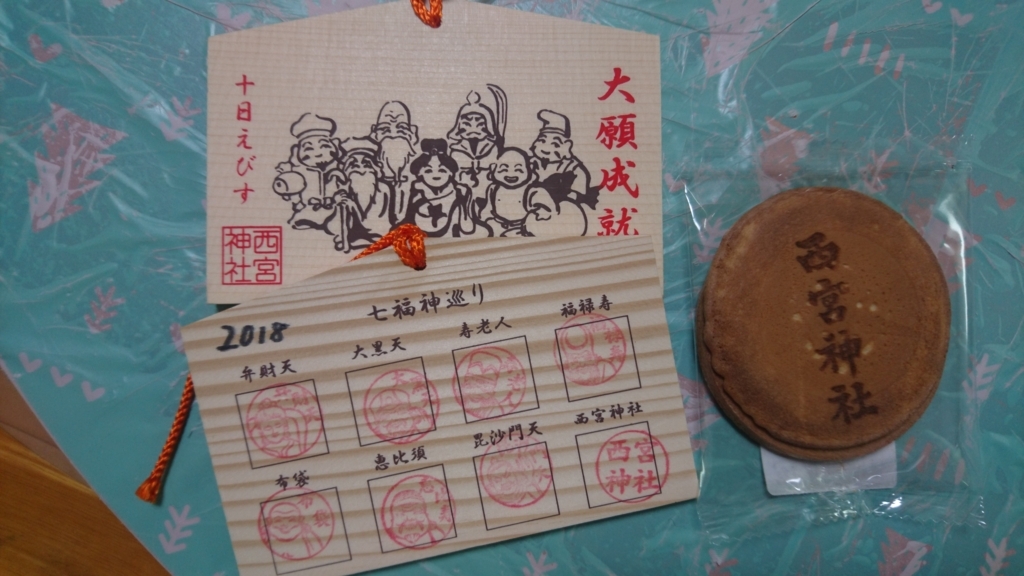 大願成就
十日えびす
西宮
神社
七福神巡り
2018
弁財天
大黒天
寿老人
福禄寿
布袋
恵比須
毘沙門天
西宮神社
西宮
神社
西宮神社